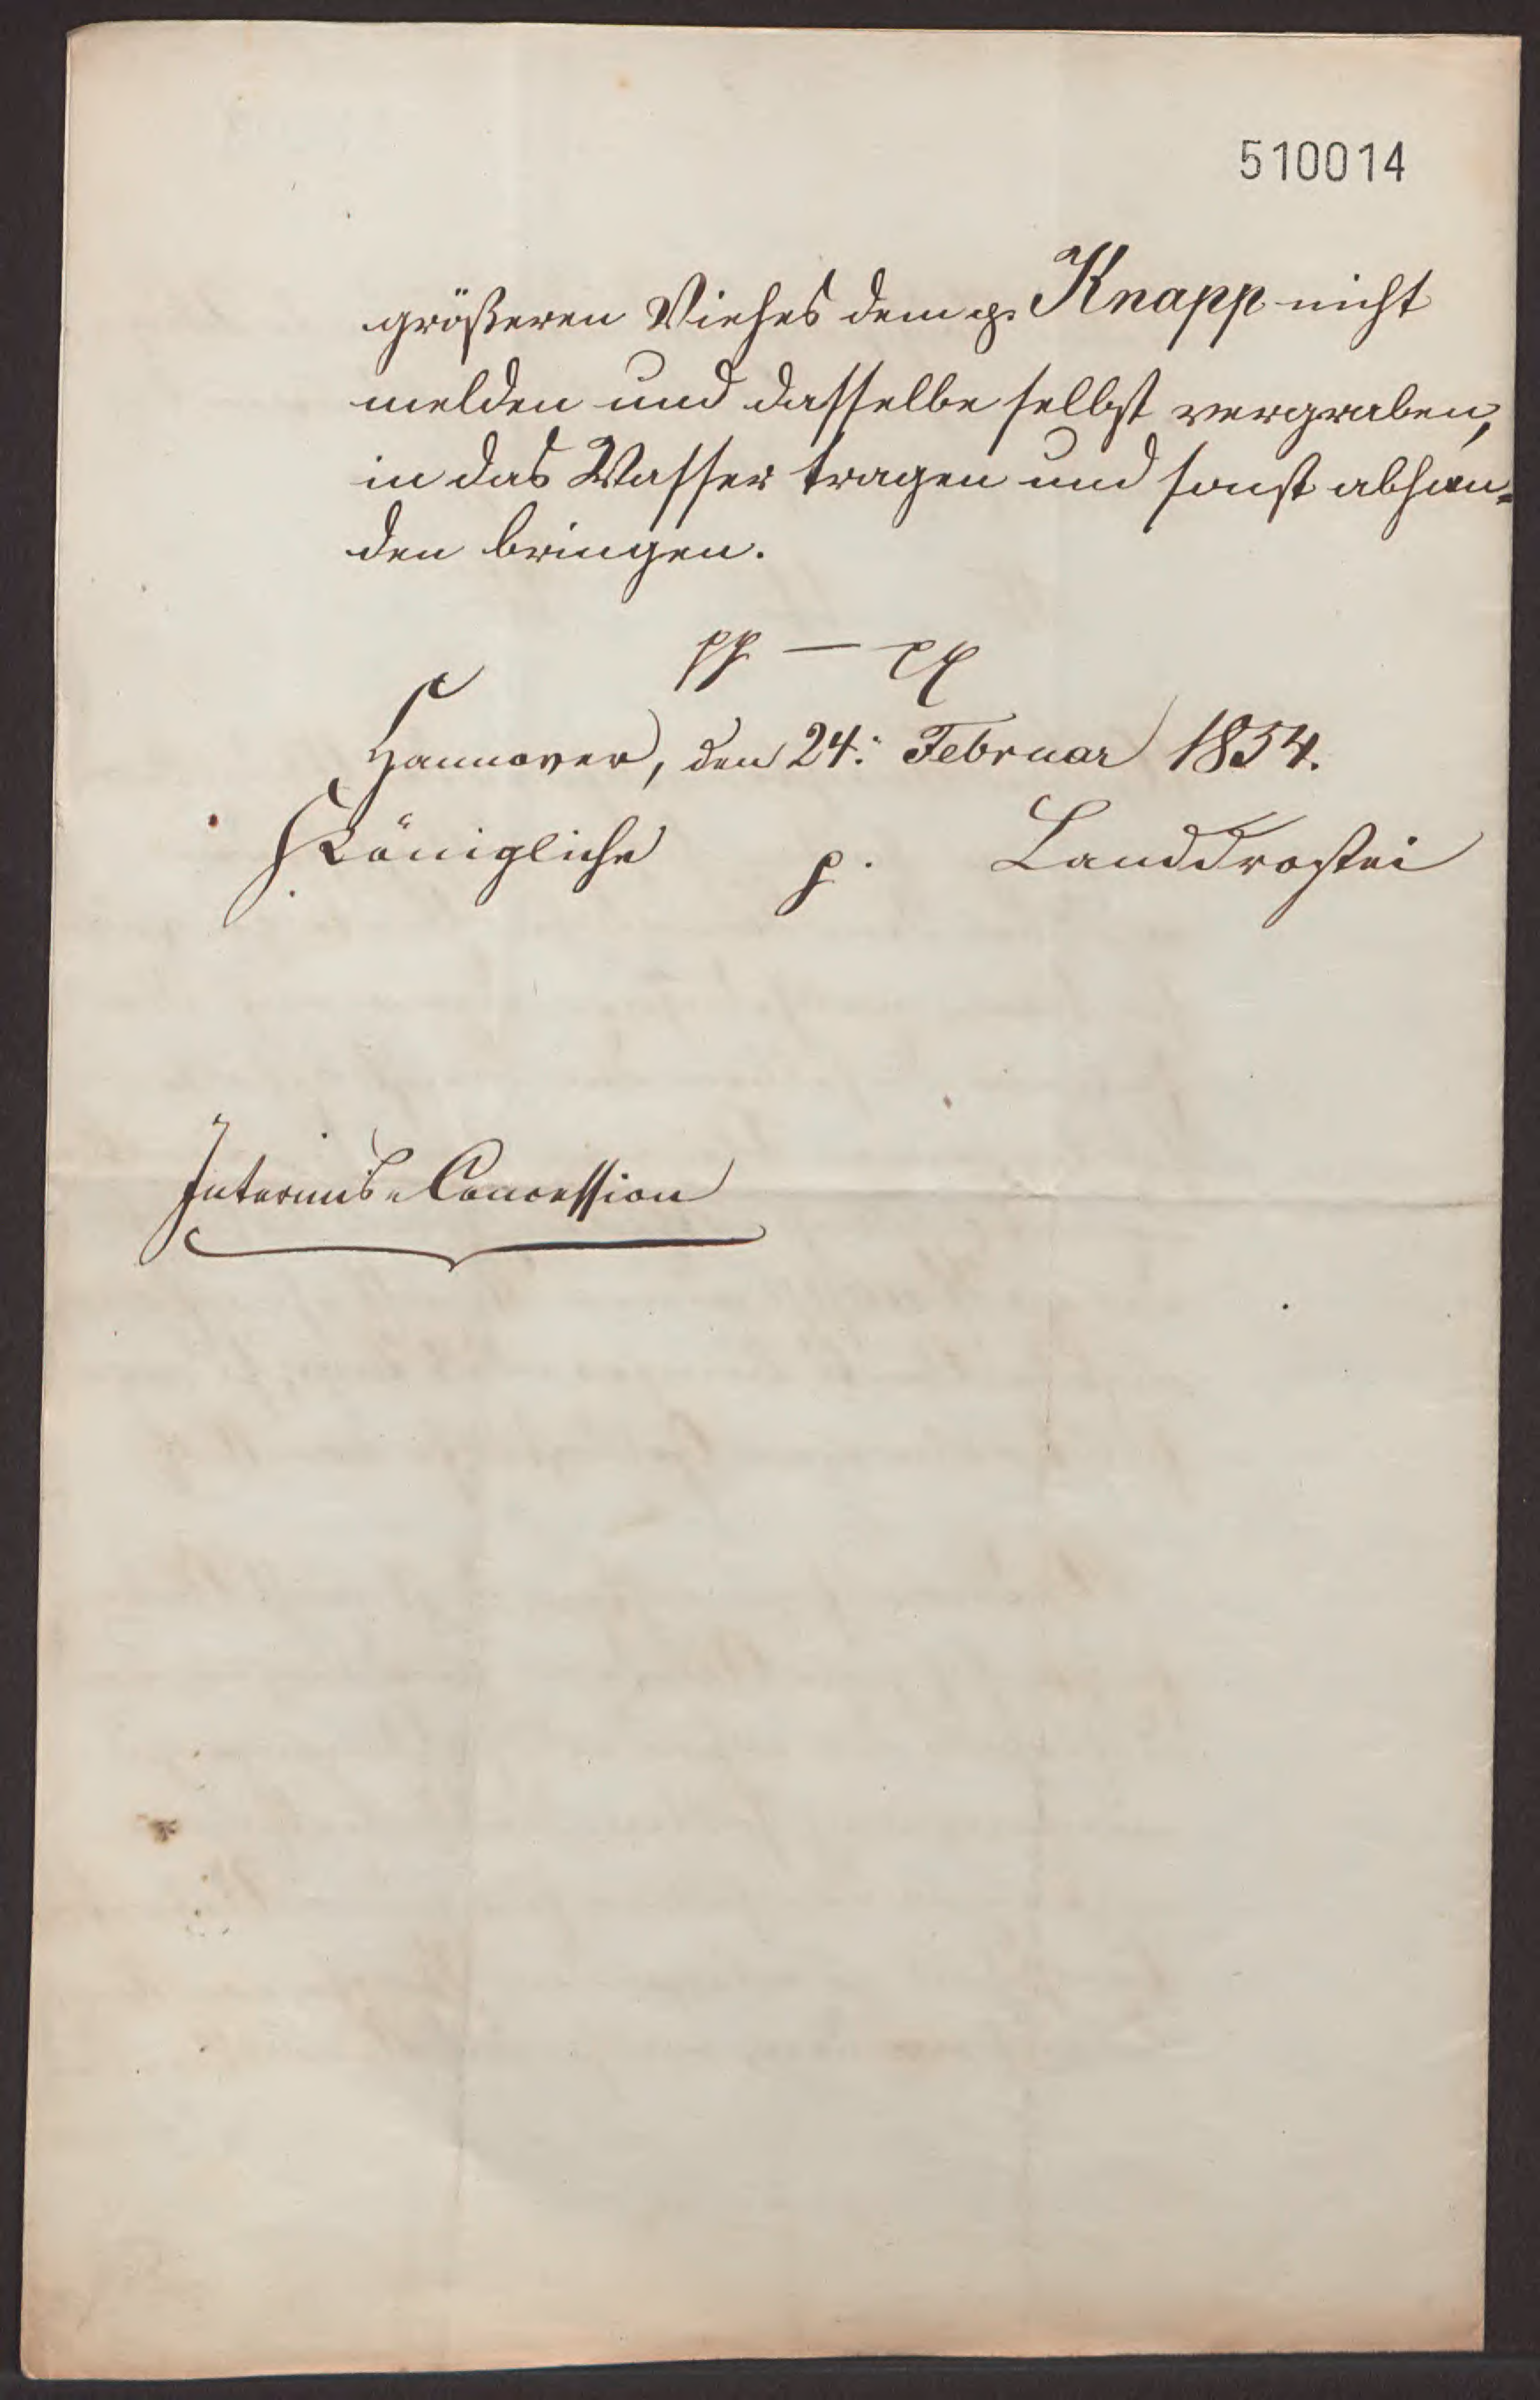 510014
größeren Viehes dem p. Knapp nicht
melden und dasselbe selbst vergraben,
in das Wasser tragen und sonst abhan=
den bringen.
pp — pp
Hannover, den 24. Februar 1854.
Königliche p. Landdrostei
Interims-Concession